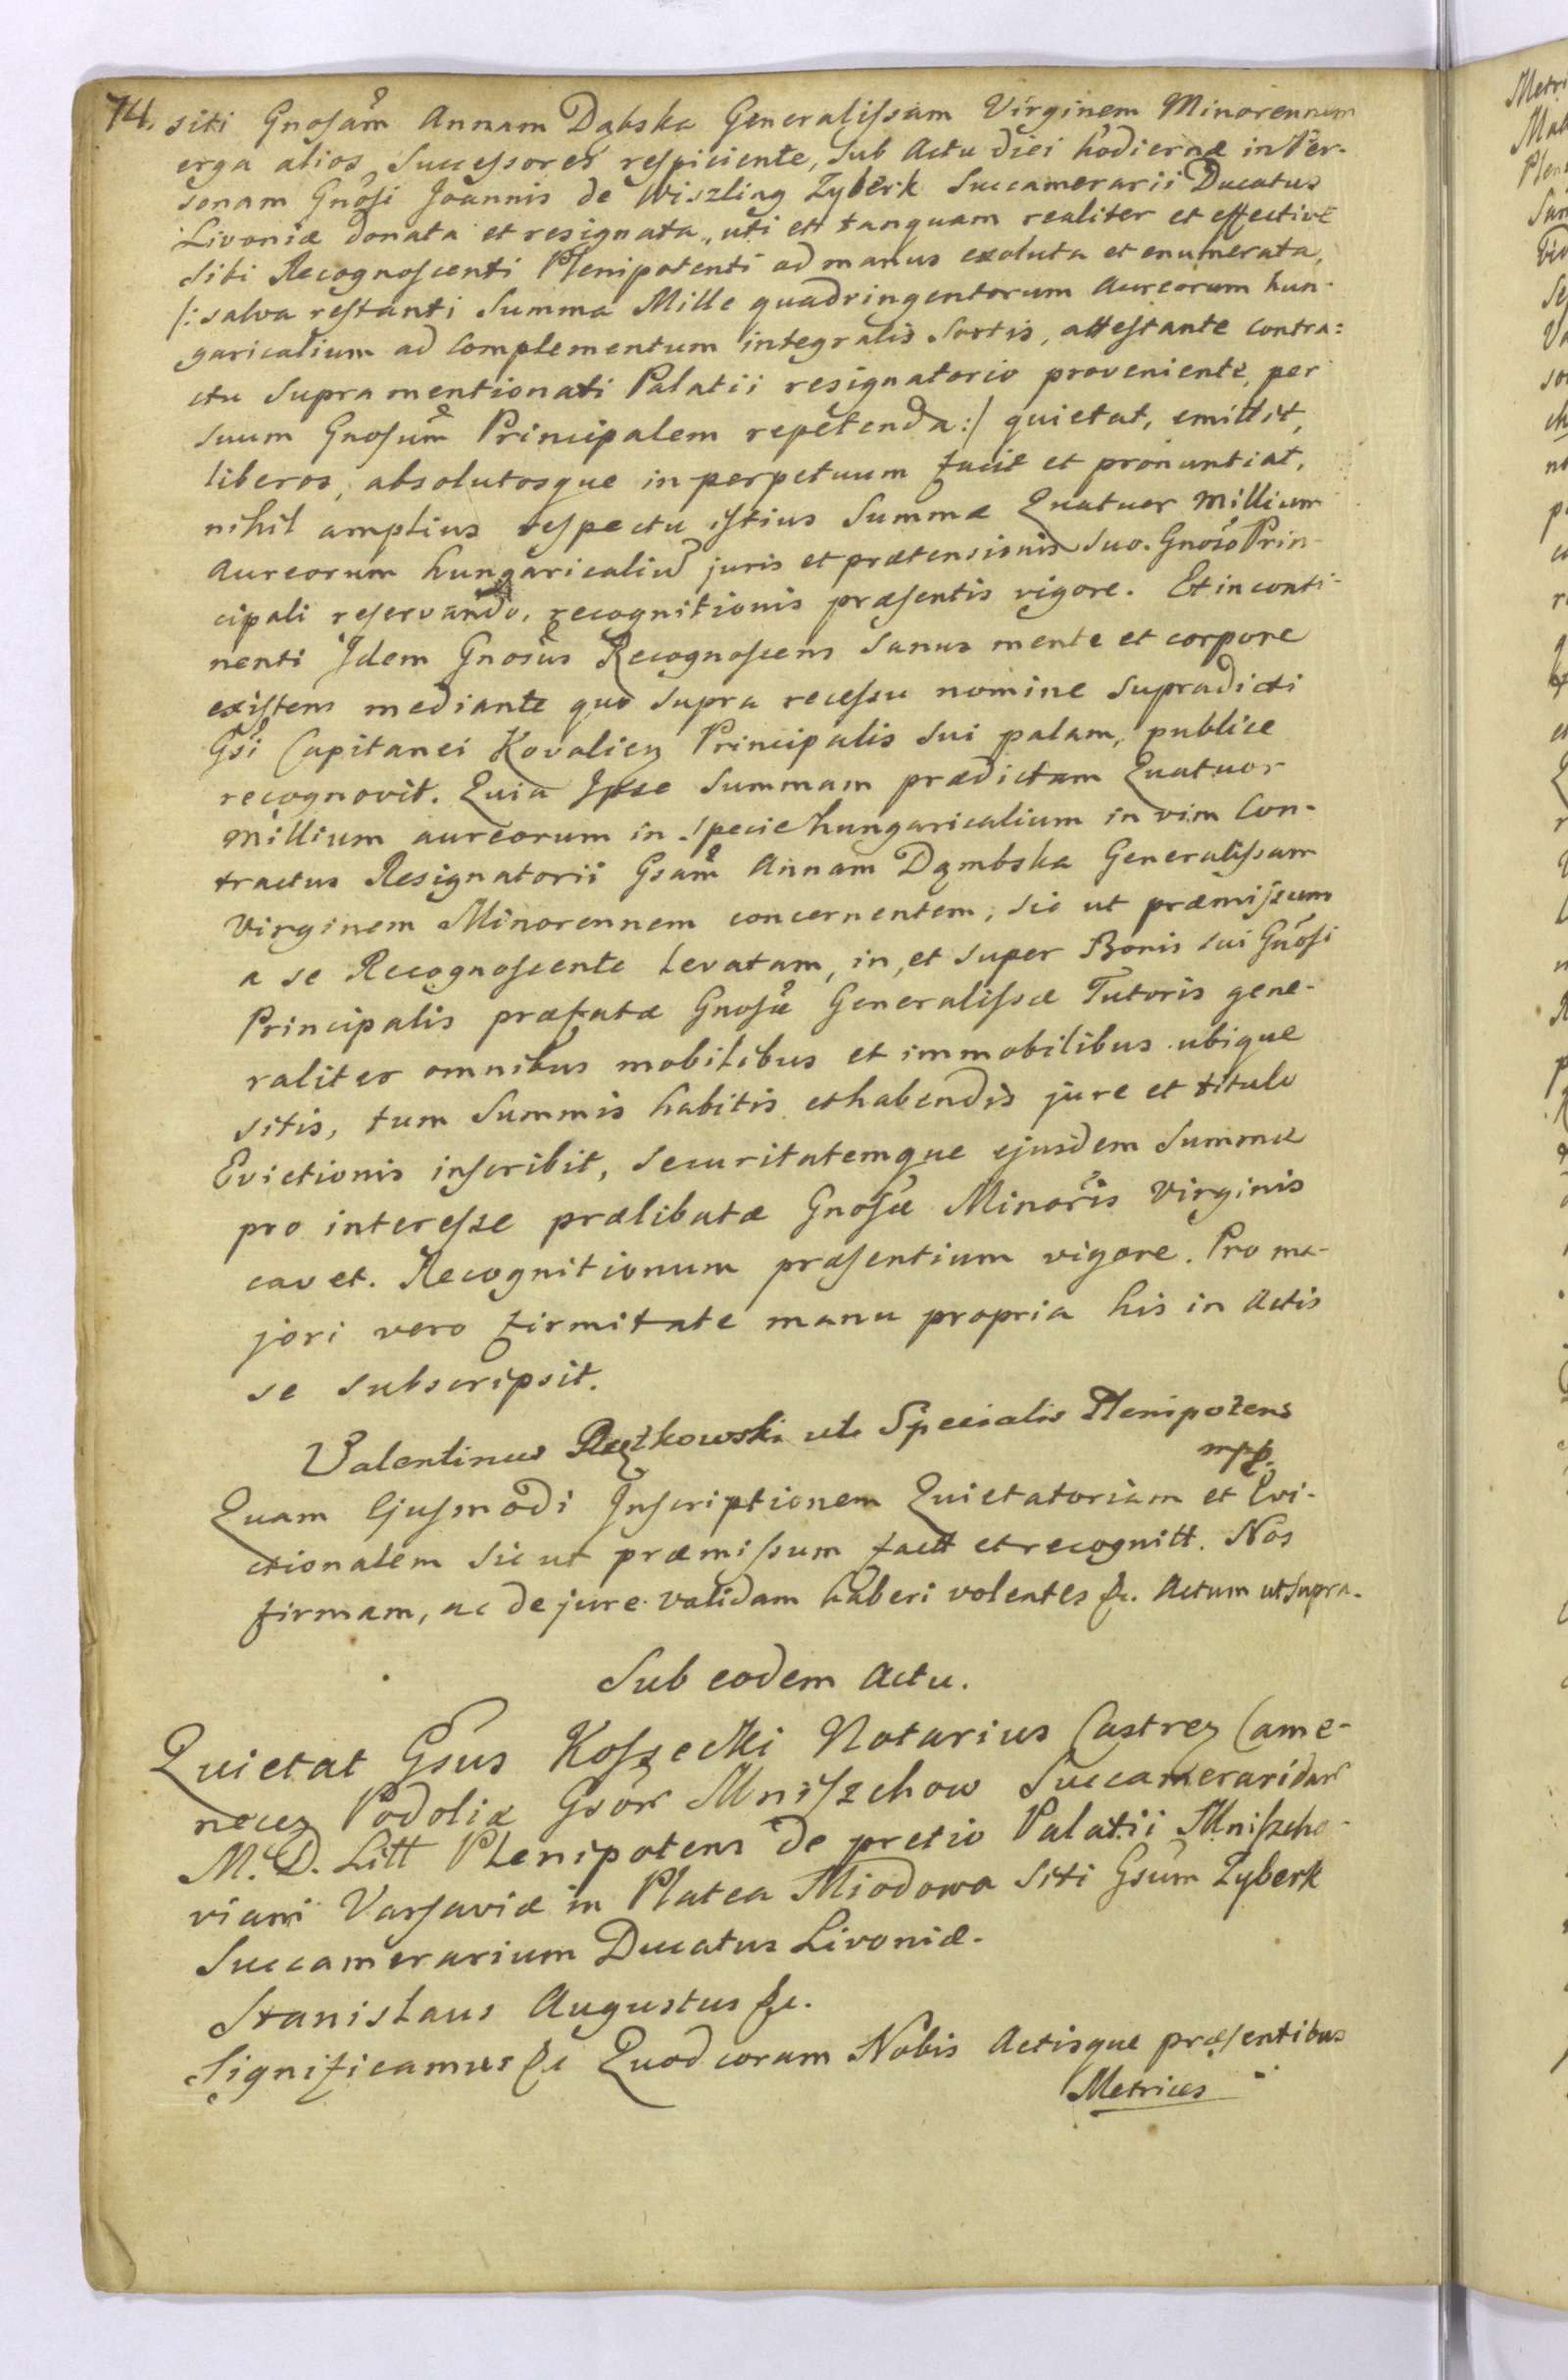 74. siti Gnosam̃ Annam Dąbska Generalissam Virginem Minorennem
erga alios Successores respiciente, sub Actu diei hodiernæ in Per-
sonam Gnosi Joannis de Wiszling Zyberk Succamerarii Ducatus
Livoniæ donata et resignata, uti ett tanquam realiter et effective
sibi Recognoscenti Plenipotenti ad manus exoluta et enumerata,
/: salva restanti Summa Mille quadringentorum Aureorum hun-
garicalium ad complementum integralis Sortis, attestante contra:
ctu supramentionati Palatii resignatorio proveniente, per
suum Gnosum̃ Principalem repetenda :/ quietat, emittit,
liberos, absolutosque in perpetuum facit et pronuntiat,
nihil amplius respectu istius Summæ Quatuor Millium
Aureorum hungaricaliũ juris et prætensionis suo Gnoso Prin-
cipali reservando, recognitionis præsentis vigore. Et in conti-
nenti Idem Gnosus Recognoscens sanus mente et corpore
existens mediante quo supra recessu nomine supradicti
Gsi Capitanei Kovalien Principalis sui palam, publice
recognovit. Quia Ipse Summam prædictam Quatuor
Millium aureorum in specie hungaricalium in vim Con-
tractus Resignatorii Gsam̃ Annam Dąmbska Generalissam
Virginem Minorennem concernentem, sic ut præmissum
a se Recognoscente levatam, in, et super Bonis sui Gnosi
Principalis præfatæ Gnosæ Generalissæ Tutoris gene-
raliter omnibus mobilibus et immobilibus ubique
sitis, tum Summis habitis et habendis jure et titulo
Evictionis inscribit, securitatemque ejusdem Summæ
pro interesse prælibatæ Gnosæ Minoris Virginis
cavet. Recognitionum præsentium vigore. Pro ma-
jori vero firmitate manu propria his in Actis
se subscripsit.
Valentinus ut Specialis Plenipotens
mpp.
Quam Ejusmodi Inscriptionem Quietatoriam et Evi-
ctionalem sic ut præmissum factt et recognitt. Nos
firmam, ac de jure validam haberi volentes &c. Actum ut supra.
Sub eodem Actu.
Quietat Gsus Koszecki Notarius Castren Came-
necen Podoliæ Gsor Mniszchow Succameraridar
M. D. Litt Plenipotens de pretio Palatii Mniszcho-
viani Varsaviæ in Platea Miodowa siti Gsum Zyberk
Succamerarium Ducatus Livoniæ.
Stanislaus Augustus &c.
Significamus &c Quod coram Nobis Actisque præsentibus
Metrices